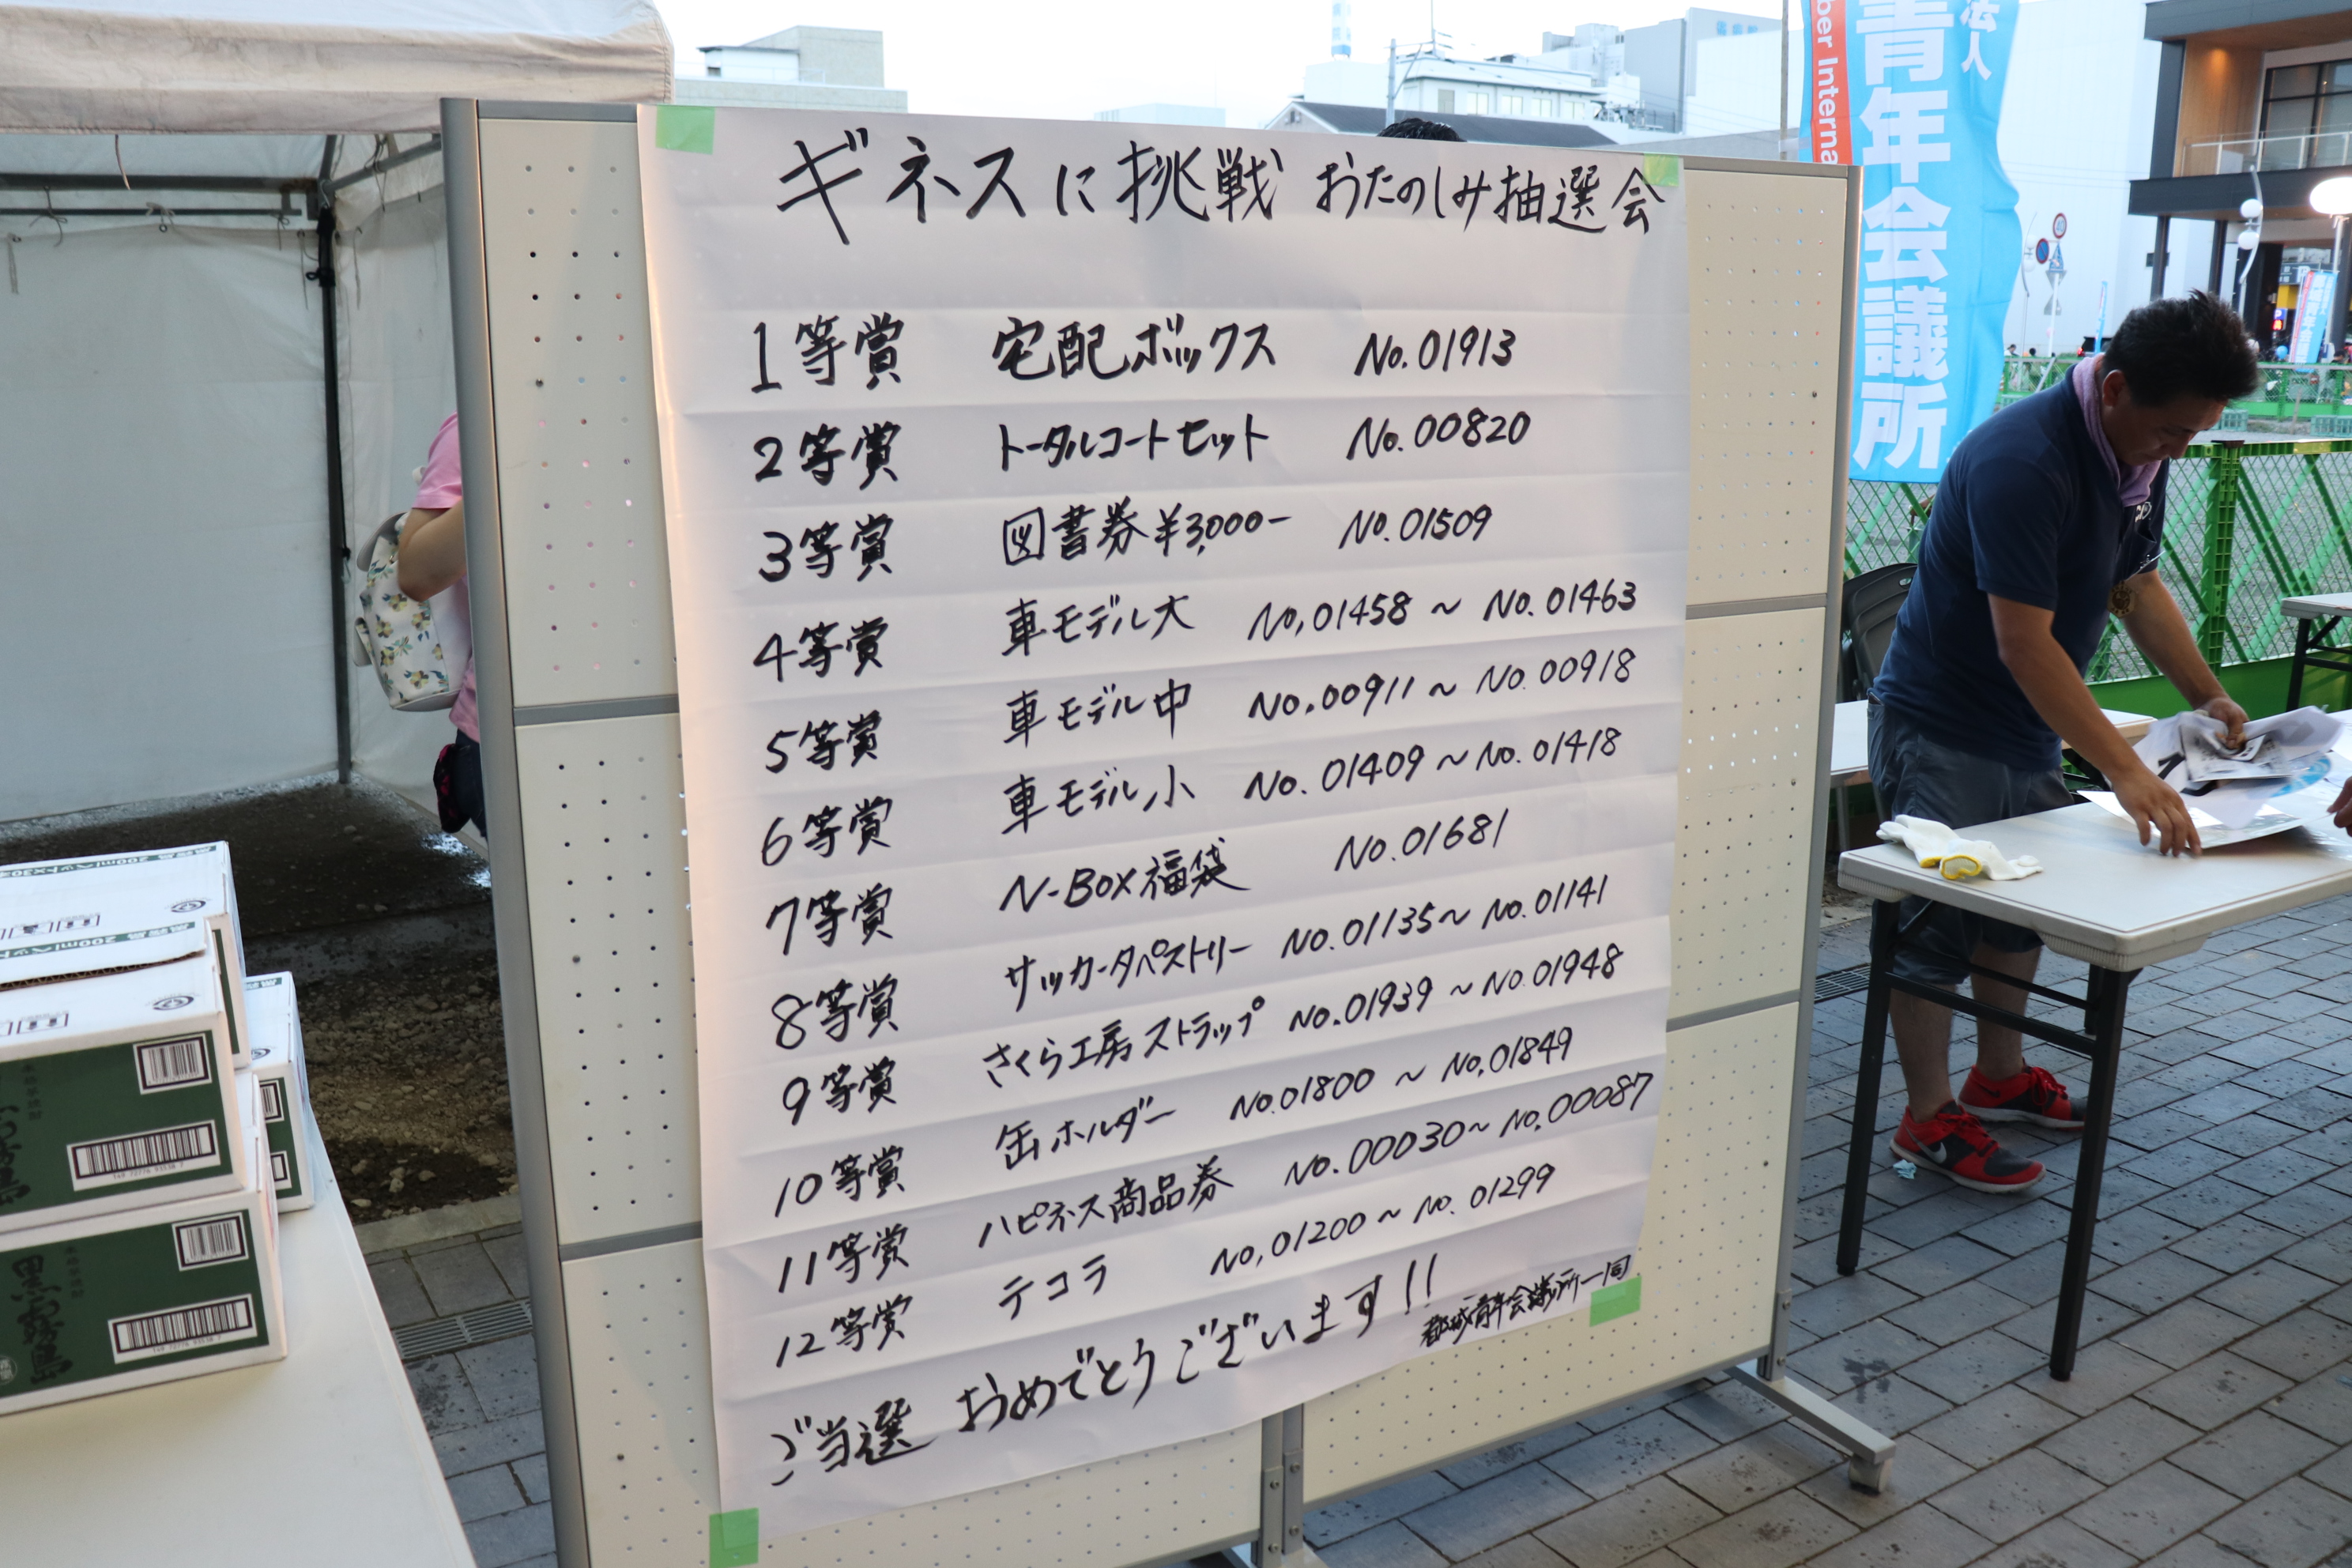 ギネスに挑戦 おたのしみ抽選会
1等賞 宅配ボックス No.01913
2等賞 トータルコートセット No.00820
3等賞 図書券¥3,000- No.01509
4等賞 車モデル大 No.01458 ~ No.01463
5等賞 車モデル中 No.00911 ~ No.00918
6等賞 車モデル小 No.01409 ~ No.01418
7等賞 N-BOX福袋 No.01681
8等賞 サッカータペストリー No.01135~ No.01141
9等賞 さくら工房ストラップ No.01939 ~ No.01948
10等賞 缶ホルダー No.01800 ~ No.01849
11等賞 ハピネス商品券 No.00030~ No.00087
12等賞 テコラ No.01200 ~ No.01299
ご当選 おめでとうございます!!
都城青年会議所一同
法人
青年会議所
ber Interna
200ml